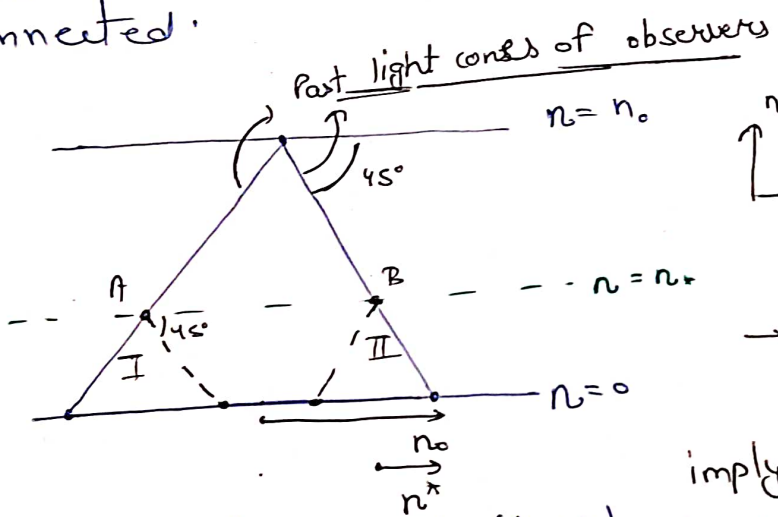 nnected.
Past light cones of observers
n = n₀
n
45°
A
B
n = n*
45°
I
II
n = 0
n₀
n*
imply